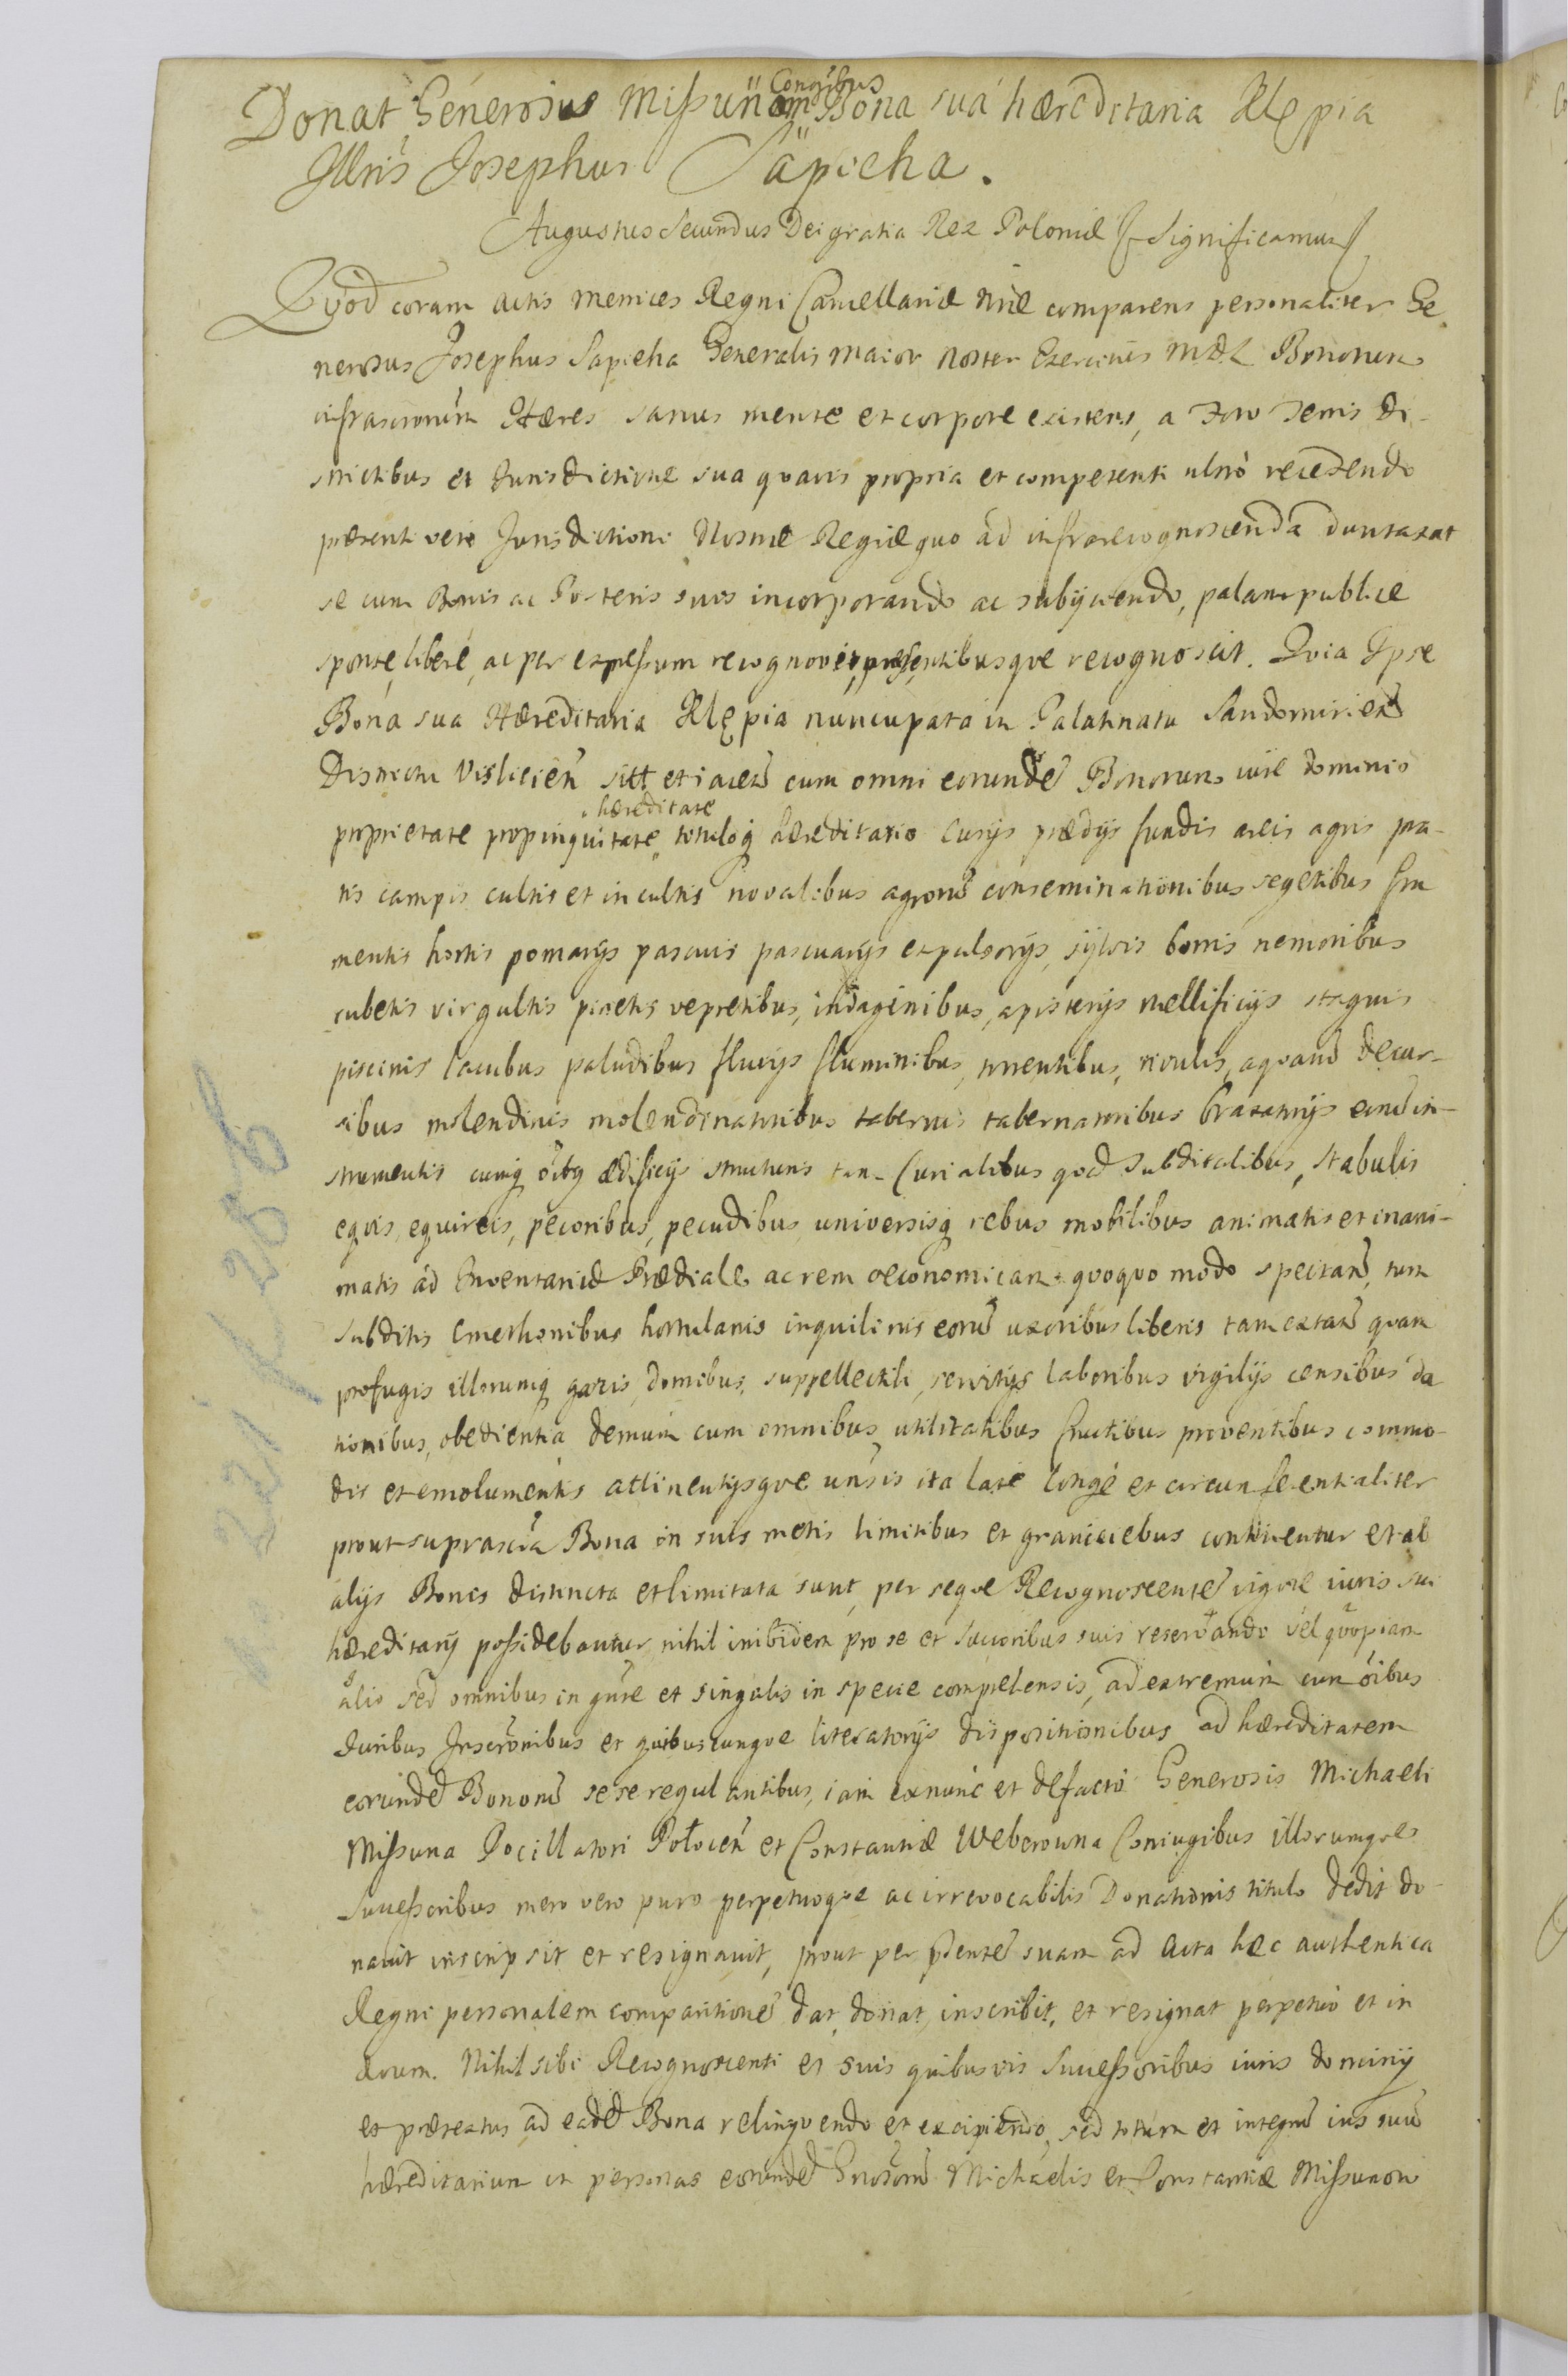 Donat Generosius Missunom Congibus Bona sua hæreditaria Klępia
Illris Josephus Sapieha.
Augustus Secundus Dei gratia Rex Poloniæ Significamus
Quod coram actis metrices Regni Cancellariæ nræ comparens personaliter Ge
nerosus Josephus Sapieha Generalis maior noster Exercitus M D L Bonorum
infrascriorum Hæres sanus mente et corpore existens, a Foro Terris di-
strictibus et Jurisdictione sua quavis propria et competenti ultrò recedendo
præsenti vero Jurisdictioni Nostræ Regiæ quo ad infrarecognoscenda duntaxat
se cum Bonis ac Posteris suis incorporando ac subijciendo, palam publice
sponte, libere, ac per expressum recognovit, præsentibusque recognoscit. Quia Ipse
Bona sua Hæreditaria Klępia nuncupata in Palatinatu Sandomirien
Districtu Vislicien sitt et iacen cum omni eorunde Bonorum iure dominio
proprietate propinquitate hæreditate tituloq hæreditario Curijs prædijs fundis areis agris pra-
tis campis cultis et incultis novalibus agroru conseminationibus segetibus fru
mentis hortis pomarijs pascuis pascuarijs expulsorijs, sylvis borris nemoribus
rubetis virgultis pinetis vepretibus, indaginibus, apisterijs mellificijs stagnis
piscinis lacubus paludibus fluvijs fluminibus, torrentibus, rivulis, aquaru decur-
sibus molendinis molendinatoribus tabernis tabernatoribus braxatorijs earud in-
strumentis cumq oibq ædificijs structuris tam Curialibus qod Subditalibus, stabulis
equis, equireis, pecoribus, pecudibus universisq rebus mobilibus animatis et inani-
matis ad Inventariu Prædiale ac rem oeconomicam quoquo modo spectan, tum
subditis Cmethonibus hortulanis inquilinis eoru uxoribus liberis tam extan quam
profugis illorumq gazis, domibus, suppellectili, servitijs laboribus vigilijs censibus da
tionibus, obedientia demum cum omnibus utilitatibus fructibus proventibus commo-
dis et emolumentis attinentijsque unsis ita late longe et circumferentialiter
prout suprascra Bona in suis metis limitibus et graniciebus continentur et ab
alijs Bonis distincta et limitata sunt, per seque Recognoscente vigore iuris sui
hæreditarij possidebantur, nihil inibidem pro se et Succoribus suis reservando vel quopiam
alio sed omnibus in gnre et singulis in specie comprehensis, ad extremum cum oibus
Juribus Inscronibus et quibuscunque literatorijs dispositionibus ad hæreditatem
eorunde Bonoru sese regulantibus, iam exnunc et defacto Generosis Michaeli
Missuna Pocillatori Połocen et Constantiæ Weberowna Coniugibus illorumque
Successoribus mero vero puro perpetuoque ac irrevocabilis Donationis titulo dedit do-
navit inscripsit et resignavit, prout per pdente suam ad Acta hæc authentica
Regni personalem comparitione dat, donat, inscribit, et resignat perpetuo et in
ævum. Nihil sibi Recognoscenti et suis quibusvis Successoribus iuris dominij
et prætextus ad eade Bona relinquendo et excipiendo, sed totum et integru ius suu
hæreditarium in personas eorunde Gnosoru Michaelis et Constantiæ Missunow